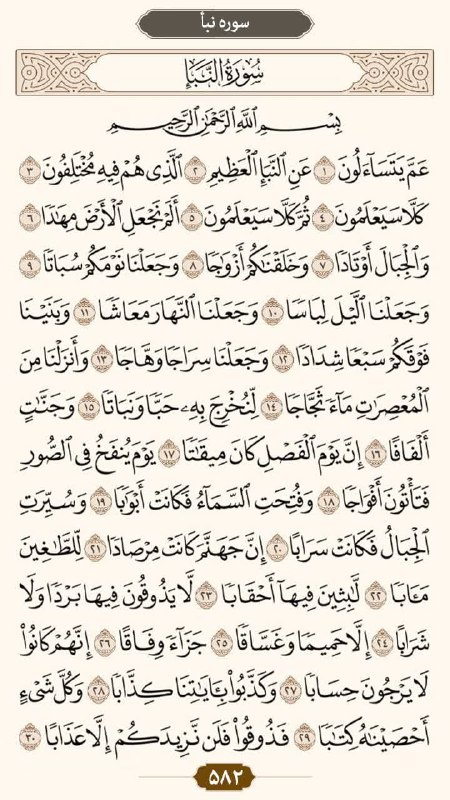 سوره نبأ
سُورَةُ النَّبَإِ
بِسْمِ اللَّهِ الرَّحْمَٰنِ الرَّحِيمِ
عَمَّ يَتَسَآءَلُونَ ١ عَنِ النَّبَإِ الْعَظِيمِ ٢ الَّذِي هُمْ فِيهِ مُخْتَلِفُونَ ٣
كَلَّا سَيَعْلَمُونَ ٤ ثُمَّ كَلَّا سَيَعْلَمُونَ ٥ أَلَمْ نَجْعَلِ الْأَرْضَ مِهَٰدًا ٦
وَالْجِبَالَ أَوْتَادًا ٧ وَخَلَقْنَاكُمْ أَزْوَاجًا ٨ وَجَعَلْنَا نَوْمَكُمْ سُبَاتًا ٩
وَجَعَلْنَا الَّيْلَ لِبَاسًا ١٠ وَجَعَلْنَا النَّهَارَ مَعَاشًا ١١ وَبَنَيْنَا
فَوْقَكُمْ سَبْعًا شِدَادًا ١٢ وَجَعَلْنَا سِرَاجًا وَهَّاجًا ١٣ وَأَنزَلْنَا مِنَ
الْمُعْصِرَٰتِ مَآءً ثَجَّاجًا ١٤ لِّنُخْرِجَ بِهِۦ حَبًّا وَنَبَاتًا ١٥ وَجَنَّٰتٍ
أَلْفَافًا ١٦ إِنَّ يَوْمَ الْفَصْلِ كَانَ مِيقَٰتًا ١٧ يَوْمَ يُنفَخُ فِي الصُّورِ
فَتَأْتُونَ أَفْوَاجًا ١٨ وَفُتِحَتِ السَّمَآءُ فَكَانَتْ أَبْوَٰبًا ١٩ وَسُيِّرَتِ
الْجِبَالُ فَكَانَتْ سَرَابًا ٢٠ إِنَّ جَهَنَّمَ كَانَتْ مِرْصَادًا ٢١ لِّلطَّٰغِينَ
مَـَٔابًا ٢٢ لَّٰبِثِينَ فِيهَآ أَحْقَابًا ٢٣ لَّا يَذُوقُونَ فِيهَا بَرْدًا وَلَا
شَرَابًا ٢٤ إِلَّا حَمِيمًا وَغَسَّاقًا ٢٥ جَزَآءً وِفَاقًا ٢٦ إِنَّهُمْ كَانُوا۟
لَا يَرْجُونَ حِسَابًا ٢٧ وَكَذَّبُوا۟ بِـَٔايَٰتِنَا كِذَّابًا ٢٨ وَكُلَّ شَىْءٍ
أَحْصَيْنَٰهُ كِتَٰبًا ٢٩ فَذُوقُوا۟ فَلَن نَّزِيدَكُمْ إِلَّا عَذَابًا ٣٠
۵۸۲